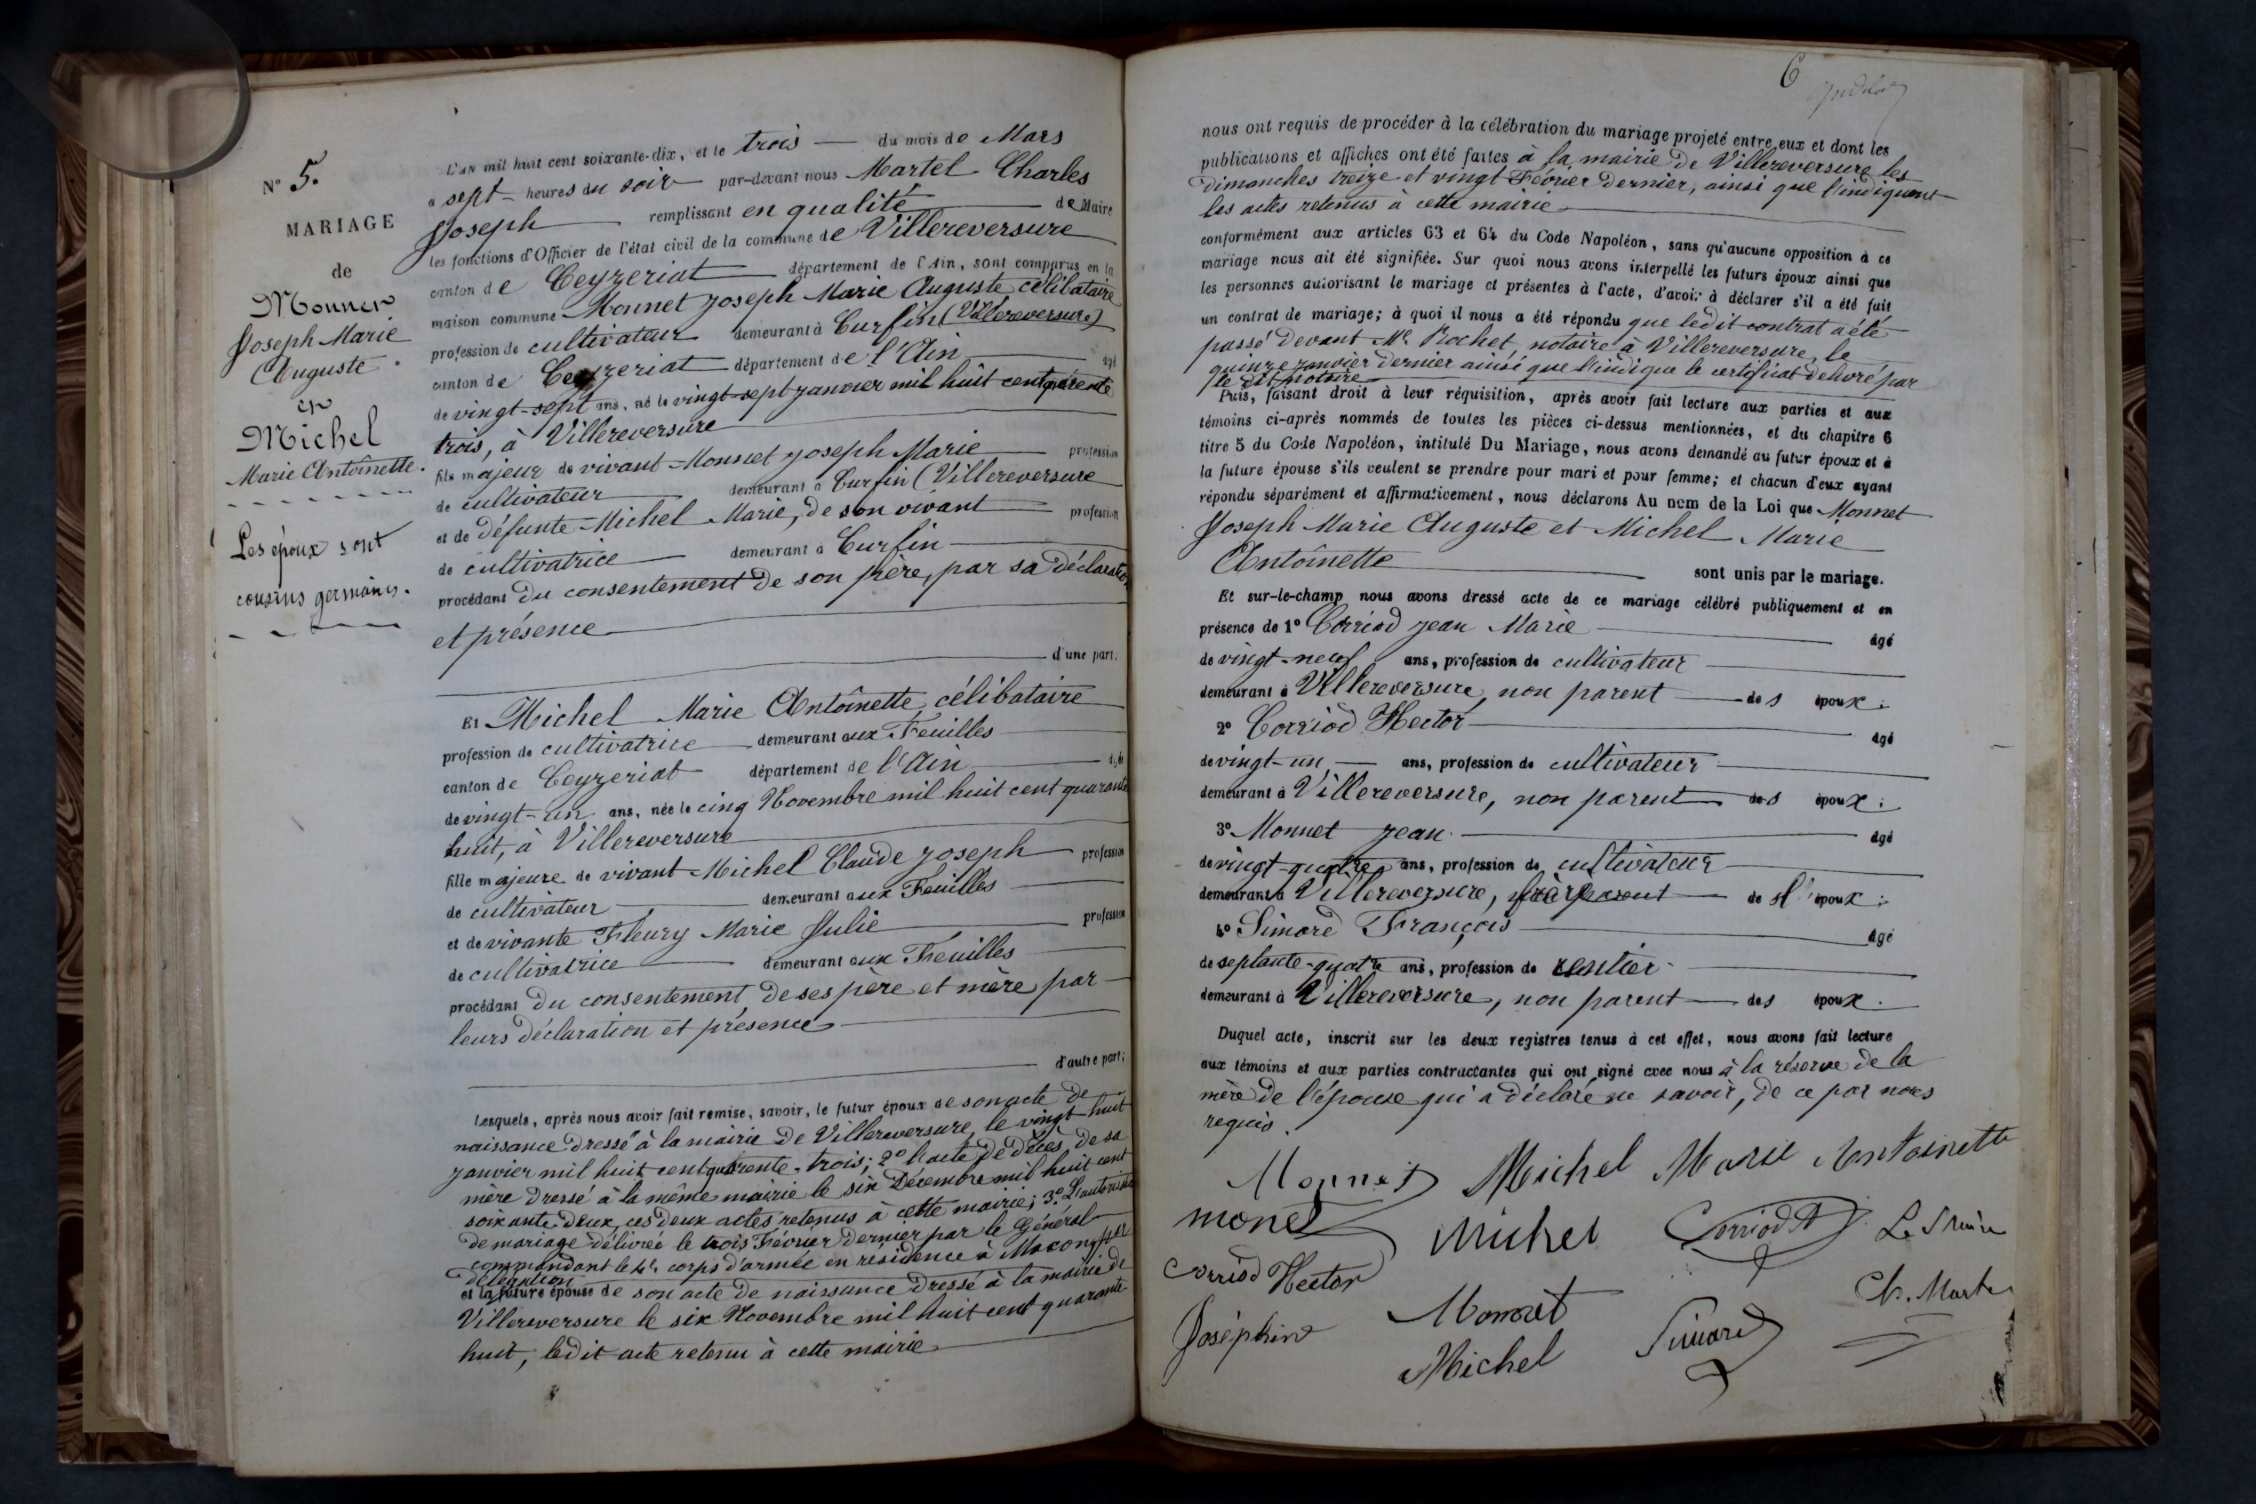 N° 5.
MARIAGE
de
Monnet
Joseph Marie
Auguste
et
Michel
Marie Antoînette.
Les époux sont
cousins germains.
L'an mil huit cent soixante-dix, et le trois du mois de Mars
a sept heures du soir par-devant nous Martel Charles
Joseph remplissant en qualité de Maire
les fonctions d'Officier de l'état civil de la commune de Villereversure
canton de Ceyzeriat département de l'Ain, sont comparus en la
maison commune Monnet Joseph Marie Auguste célibataire
profession de cultivateur demeurant à Curfin (Villereversure)
canton de Ceyzeriat département de l'Ain âgé
de vingt-sept ans, né le vingt-sept janvier mil huit cent quarante
trois, à Villereversure
fils majeur de vivant Monnet Joseph Marie profession
de cultivateur demeurant à Curfin (Villereversure
et de défunte Michel Marie, de son vivant profession
de cultivatrice demeurant à Curfin
procédant du consentement de son père, par sa déclaration
et présence
d'une part.
Et Michel Marie Antoînette, célibataire
profession de cultivatrice demeurant aux Feuilles
canton de Ceyzeriat département de l'Ain âgée
de vingt-un ans, née le cinq Novembre mil huit cent quarante
huit, à Villereversure
fille majeure de vivant Michel Claude Joseph profession
de cultivateur demeurant aux Feuilles
et de vivante Fleury Marie Julie profession
de cultivatrice demeurant aux Feuilles
procédant du consentement de ses père et mère par
leurs déclaration et présence
d'autre part;
Lesquels, après nous avoir fait remise, savoir, le futur époux de son acte de
naissance dressé à la mairie de Villereversure, le vingt huit
janvier mil huit cent quarante-trois; 2° l'acte de décès de sa
mère dressé à la même mairie le six Décembre mil huit cent
soixante deux, ces deux actes retenus à cette mairie; 3° L'autorisation
de mariage délivrée le trois Février dernier par le Général
commandant le 4e. corps d'armée en résidence à Macon, par
délégation
et la future épouse de son acte de naissance dressé à la mairie de
Villereversure le six Novembre mil huit cent quarante
huit, ledit acte retenu à cette mairie
6
nous ont requis de procéder à la célébration du mariage projeté entre eux et dont les
publications et affiches ont été faites à la mairie de Villereversure les
dimanches treize et vingt Février dernier, ainsi que l'indiquent
les actes retenus à cette mairie
conformément aux articles 63 et 64 du Code Napoléon, sans qu'aucune opposition à ce
mariage nous ait été signifiée. Sur quoi nous avons interpellé les futurs époux ainsi que
les personnes autorisant le mariage et présentes à l'acte, d'avoir à déclarer s'il a été fait
un contrat de mariage; à quoi il nous a été répondu que ledit contrat a été
passé devant Me. Rochet, notaire à Villereversure, le
quinze janvier dernier ainsi que l'indique le certificat délivré par
le dit notaire
Puis, faisant droit à leur réquisition, après avoir fait lecture aux parties et aux
témoins ci-après nommés de toutes les pièces ci-dessus mentionnées, et du chapitre 6
titre 5 du Code Napoléon, intitulé Du Mariage, nous avons demandé au futur époux et à
la future épouse s'ils veulent se prendre pour mari et pour femme; et chacun d'eux ayant
répondu séparément et affirmativement, nous déclarons Au nom de la Loi que Monnet
Joseph Marie Auguste et Michel Marie
Antoînette sont unis par le mariage.
Et sur-le-champ nous avons dressé acte de ce mariage célébré publiquement et en
présence de 1° Corriod Jean Marie âgé
de vingt-neuf ans, profession de cultivateur
demeurant à Villereversure, non parent des époux:
2° Corriod Hector âgé
de vingt-un ans, profession de cultivateur
demeurant à Villereversure, non parent des époux:
3° Monnet Jean âgé
de vingt-quatre ans, profession de cultivateur
demeurant à Villereversure, frère de l'époux:
4° Simard François âgé
de septante-quatre ans, profession de rentier
demeurant à Villereversure, non parent des époux.
Duquel acte, inscrit sur les deux registres tenus à cet effet, nous avons fait lecture
aux témoins et aux parties contractantes qui ont signé avec nous à la réserve de la
mère de l'épouse qui a déclaré ne savoir, de ce par nous
requis.
Monnet Michel Marie Antoinette
monet Michel Corriod Le Maire
Corriod Hector Monnet Ch. Martel
Joséphine Michel Simard